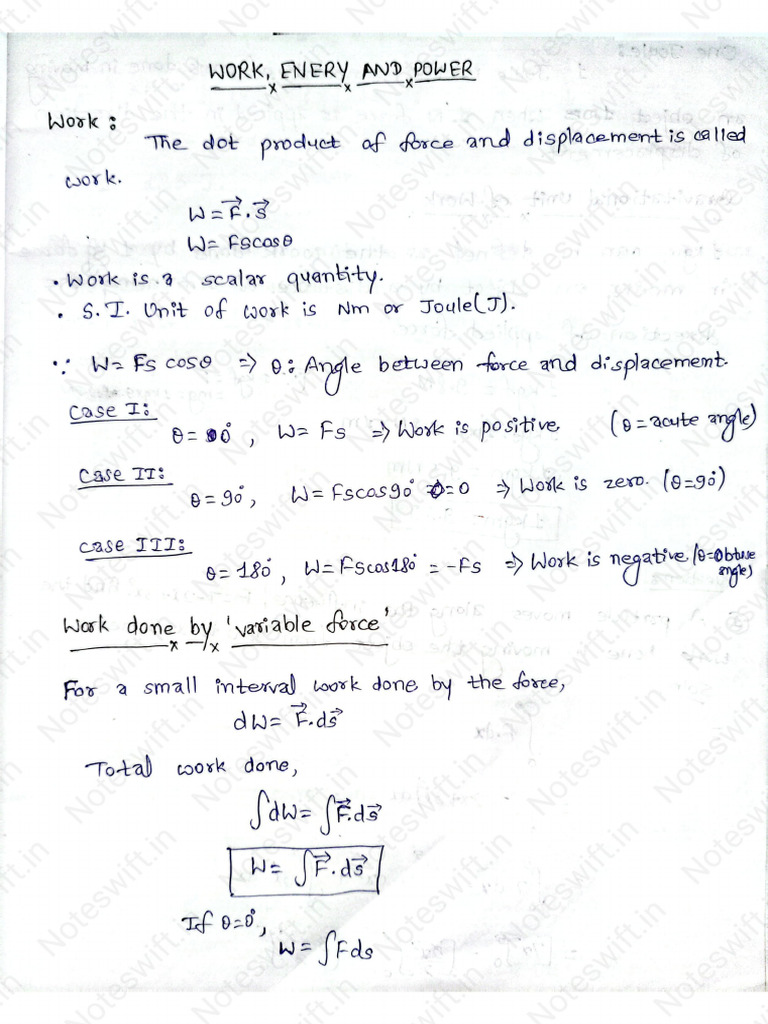 WORK, ENERY AND POWER
Work:
The dot product of force and displacement is called
work.
W = F⃗.s⃗
W = Fscosθ
• Work is a scalar quantity.
• S.I. Unit of work is Nm or Joule(J).
∵ W = Fs cosθ ⇒ θ: Angle between force and displacement.
Case I:
θ = 0°, W = Fs ⇒ Work is positive (θ = acute angle)
Case II:
θ = 90°, W = Fscos90° = 0 ⇒ Work is zero. (θ=90°)
Case III:
θ = 180°, W = Fscos180° = -Fs ⇒ Work is negative (θ=Obtuse angle)
Work done by 'variable force'
For a small interval work done by the force,
dW = F⃗.ds⃗
Total work done,
∫dW = ∫F⃗.ds⃗
W = ∫F⃗.ds⃗
If θ=0°,
W = ∫Fds
Noteswift.in